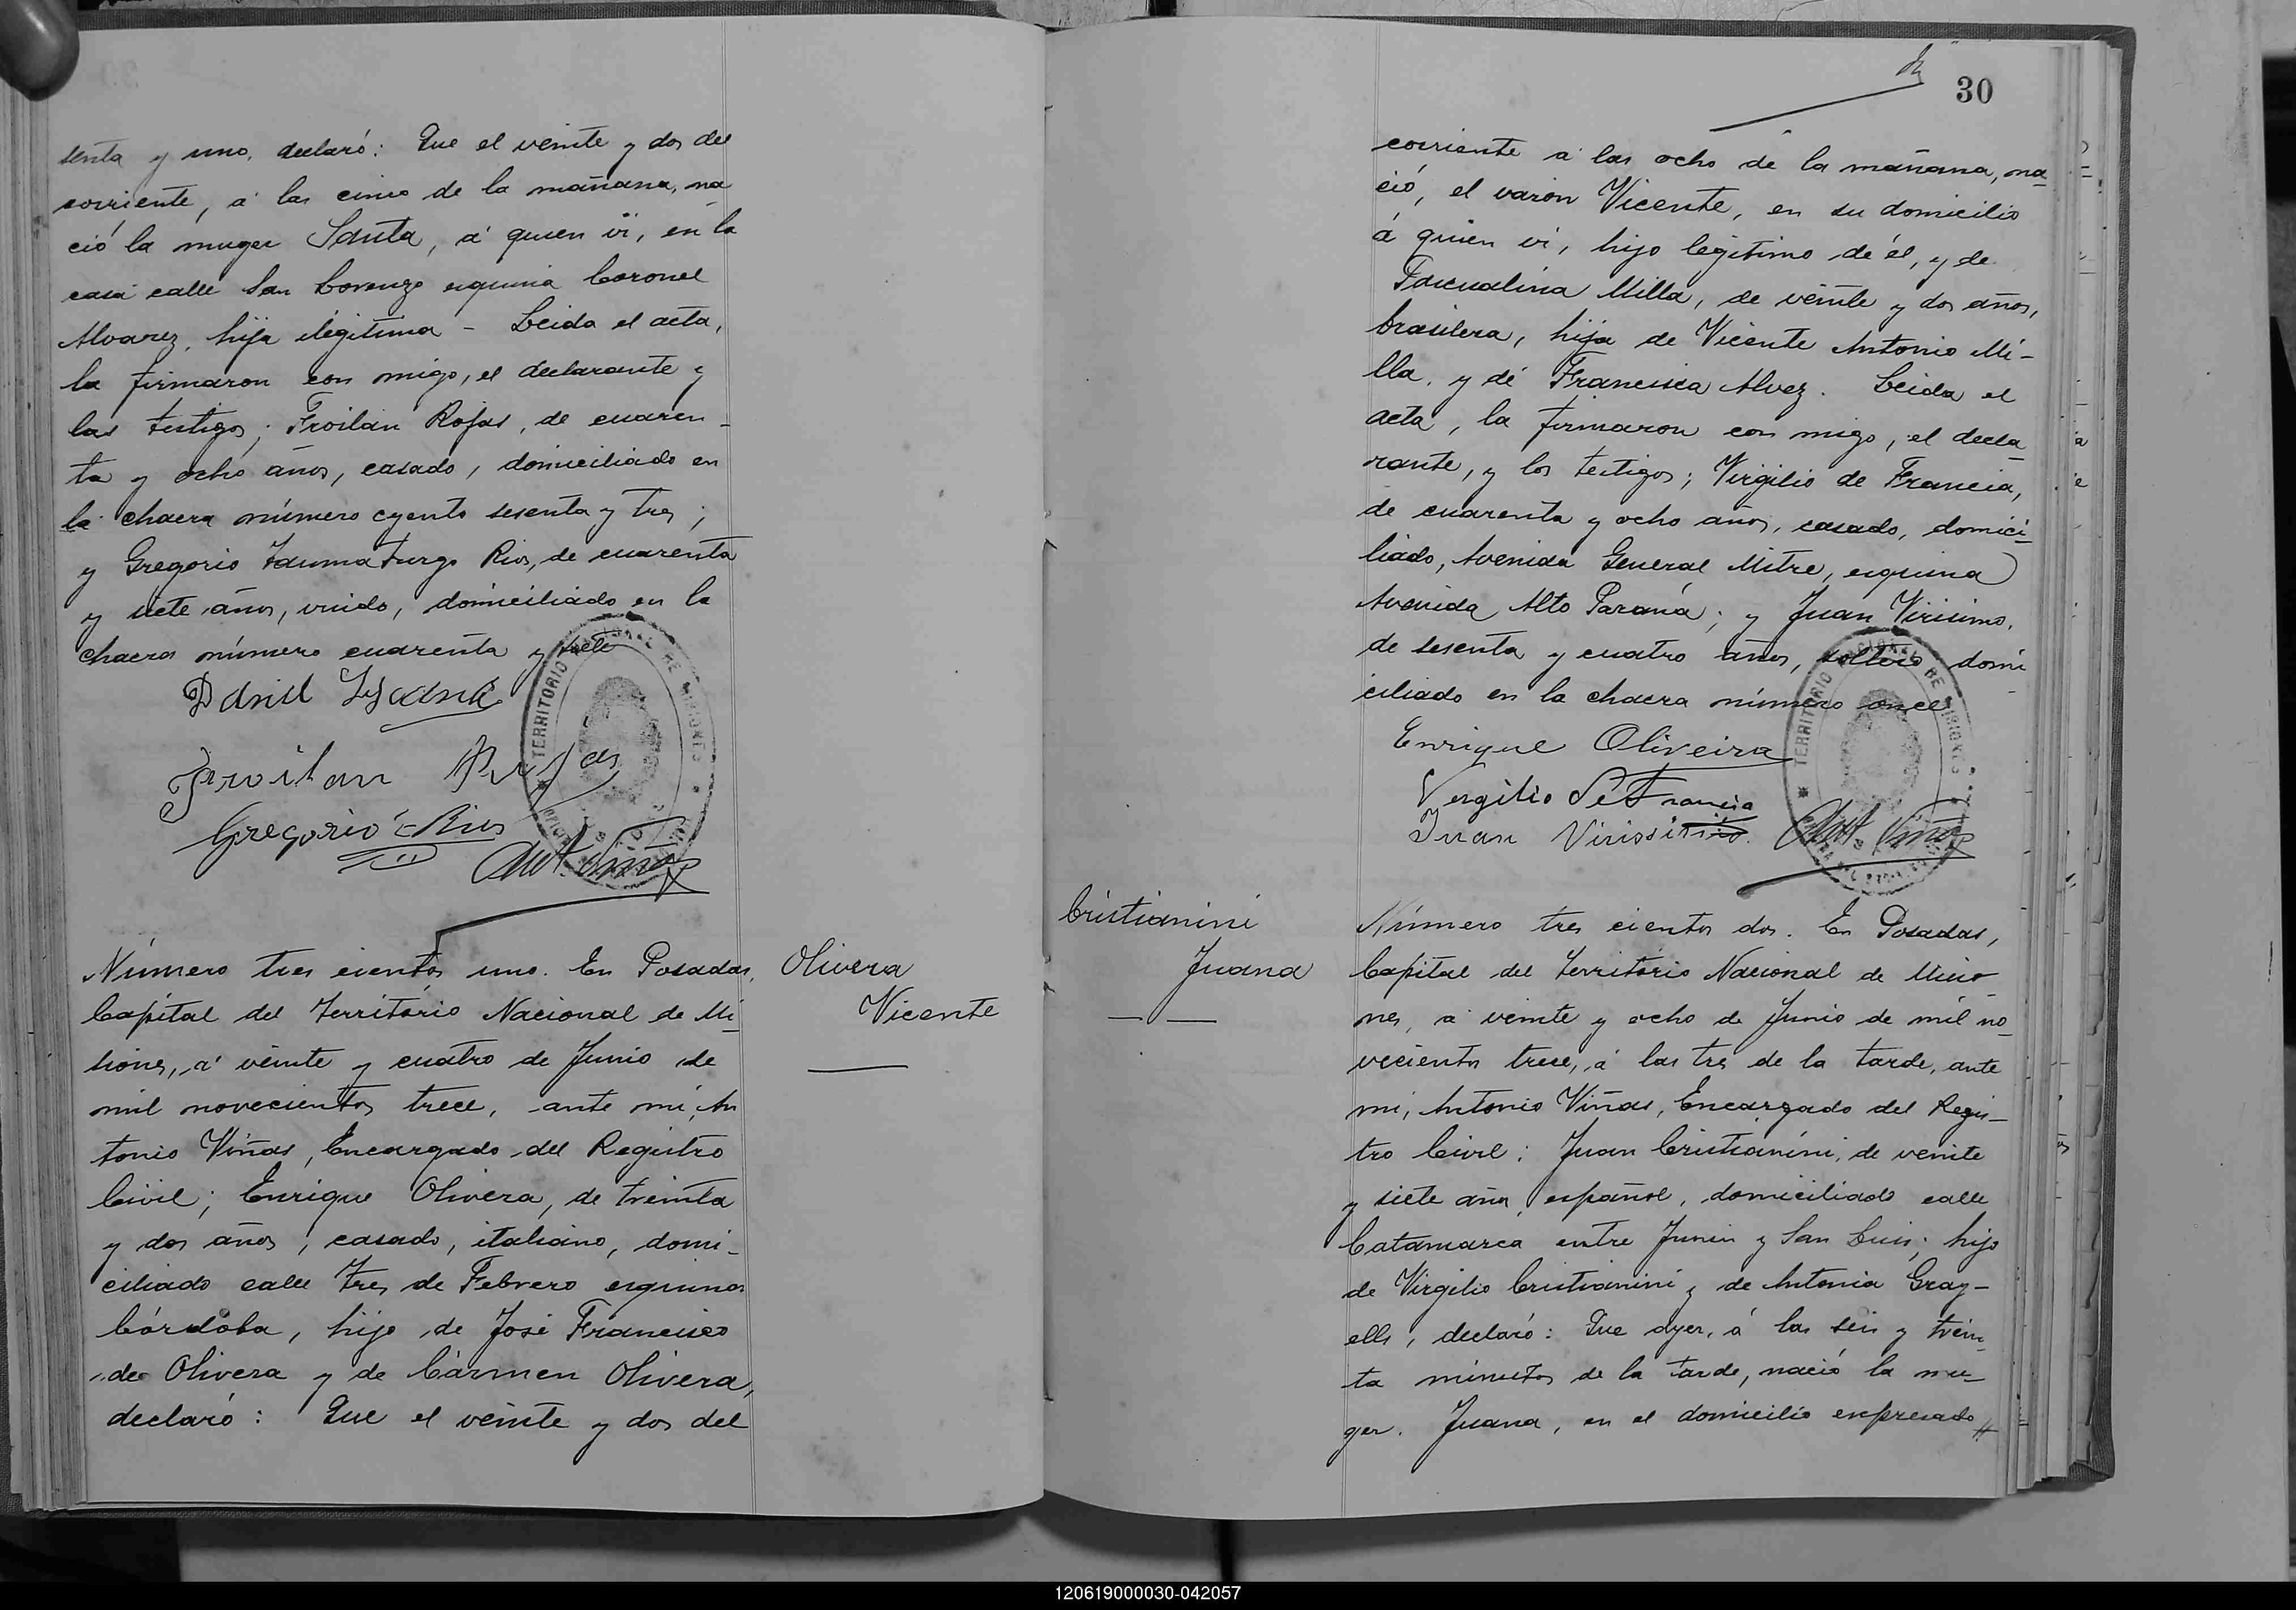 senta y uno, declaró: Que el veinte y dos del
corriente, á las cinco de la mañana, na
ció la muger Santa, á quien ví, en la
casa calle San Lorenzo esquina Coronel
Alvarez, hija ilegítima - Leida el acta,
la firmaron con migo, el declarante y
los testigos; Froilan Rojas, de cuaren-
ta y ocho años, casado, domiciliado en
la chacra número cyento sesenta y tres;
y Gregorio Taumaturgo Rios, de cuarenta
y siete años, viudo, domiciliado en la
chacra número cuarenta y siete
Froilan Rojas
Gregorio Rios
Ant. Viñas
TERRITORIO NACIONAL DE MISIONES
Número tres cientos uno. En Posadas,
Capital del Territorio Nacional de Mi-
siones, á veinte y cuatro de Junio de
mil novecientos trece, ante mí, An
tonio Viñas, Encargado del Registro
Civil; Enrique Olivera, de treinta
y dos años, casado, italiano, domi-
ciliado calle Tres de Febrero esquina
Córdoba, hijo de José Francisco
de Olivera y de Cármen Olivera,
declaró: Que el veinte y dos del
Olivera
Vicente
30
corriente á las ocho de la mañana, na-
ció, el varon Vicente, en su domicilio
á quien ví, hijo legítimo de él, y de
Pascualina Milla, de veinte y dos años,
brasilera, hija de Vicente Antonio Mi-
lla, y de Francisca Alvez. Leida el
acta, la firmaron con migo, el decla-
rante, y los testigos; Virgilio de Francia,
de cuarenta y ocho años, casado, domici-
liado, Avenida General Mitre, esquina
Avenida Alto Paraná; y Juan Virisimo,
de sesenta y cuatro años, soltero domi
ciliado en la chacra número once
Enrique Oliveira
Vergilio De Francia
Juan Virissimo.
Ant. Viñas
TERRITORIO NACIONAL DE MISIONES
Cristianini
Juana
Número tres cientos dos. En Posadas,
Capital del Territorio Nacional de Misio-
nes, á veinte y ocho de Junio de mil no-
vecientos trece, á las tres de la tarde, ante
mí, Antonio Viñas, Encargado del Regis-
tro Civil; Juan Cristianini, de veinte
y siete años, español, domiciliado calle
Catamarca entre Junin y San Luis; hijo
de Virgilio Cristianini y de Antonia Gray-
ells, declaró: Que ayer, á las seis y trein-
ta minutos de la tarde, nació la mu-
ger. Juana, en el domicilio expresado
120619000030-042057